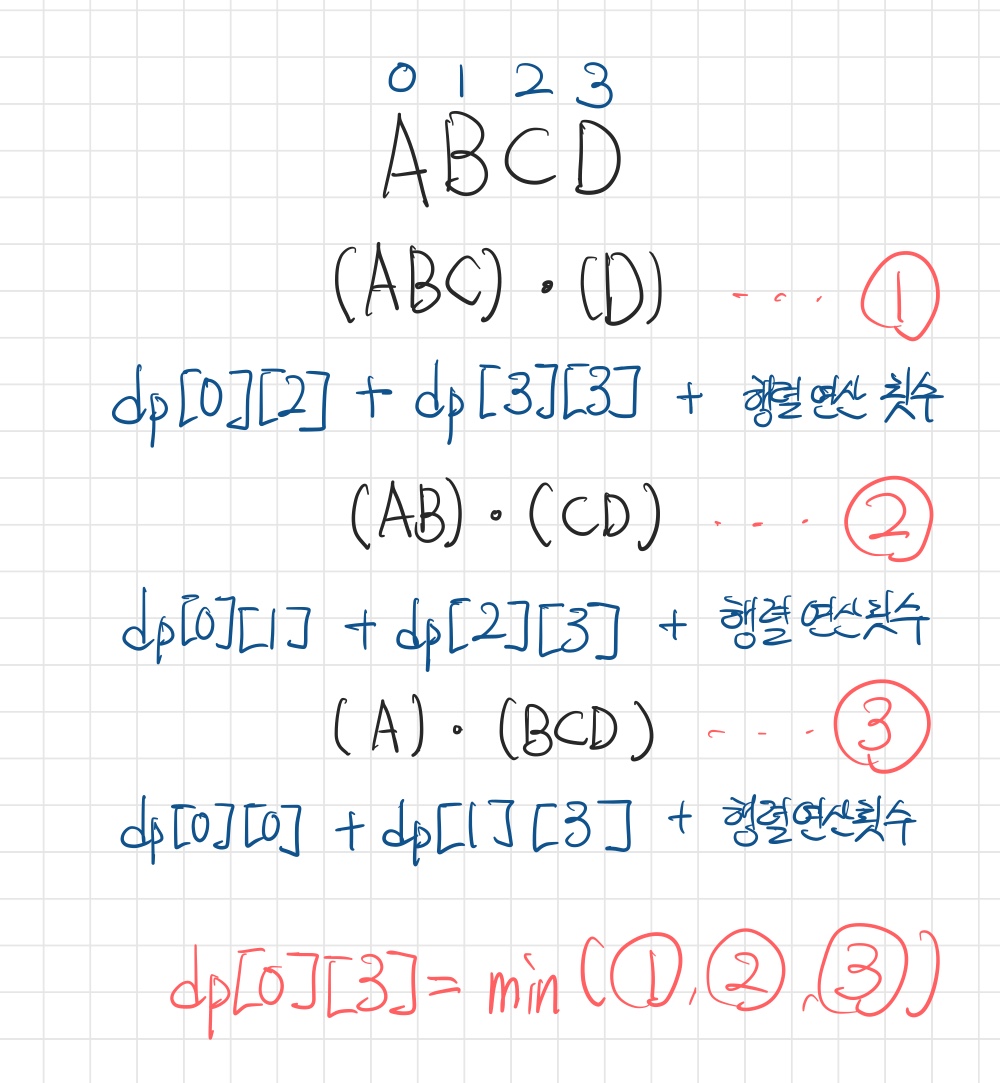 0 1 2 3
ABCD
(ABC) · (D) ... ①
dp[0][2] + dp[3][3] + 행렬 연산 횟수
(AB) · (CD) ... ②
dp[0][1] + dp[2][3] + 행렬 연산횟수
(A) · (BCD) ... ③
dp[0][0] + dp[1][3] + 행렬연산횟수
dp[0][3] = min(①, ②, ③)